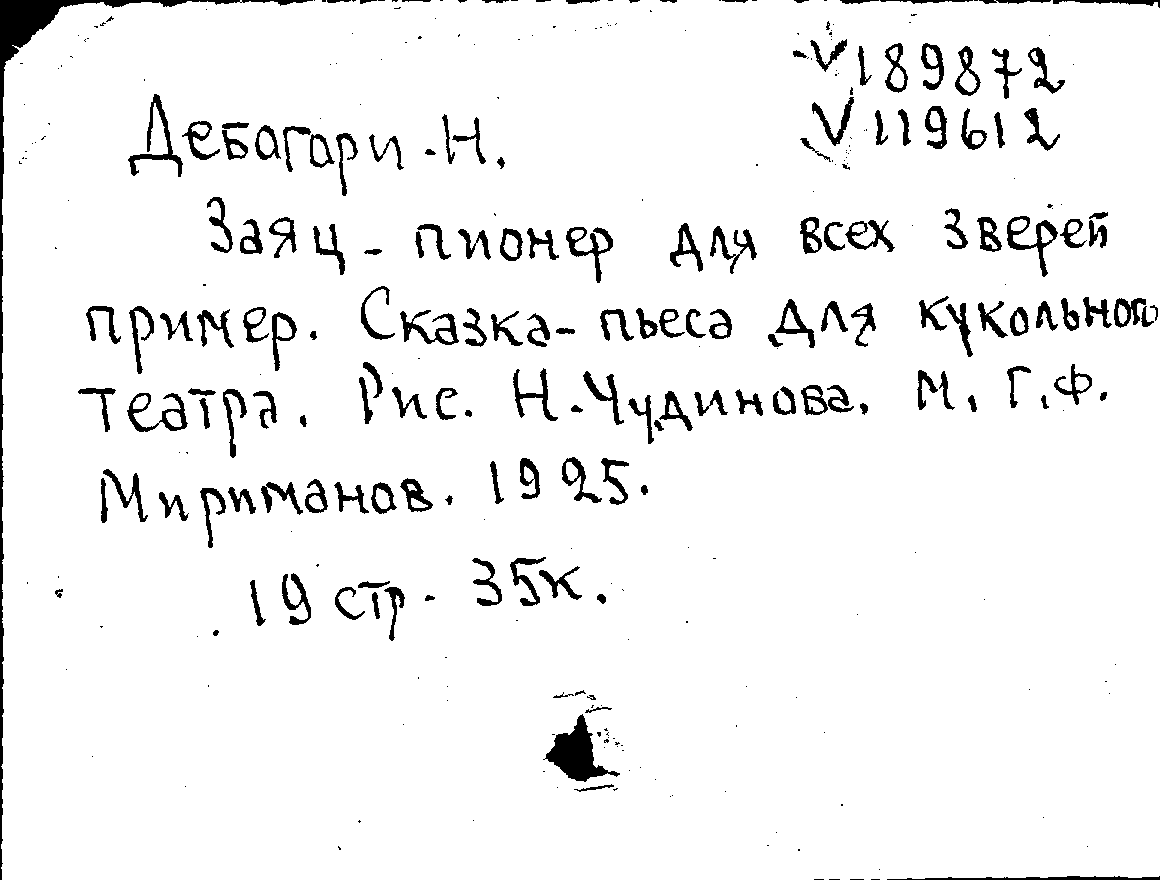 V 189872
V 119612
Дебагари. Н.
Заяц - пионер для всех зверей
пример. Сказка - пьеса для кукольного
театра. Рис. Н. Чудинова. М. Г.Ф.
Мириманов. 1925.
19 стр. 35к.